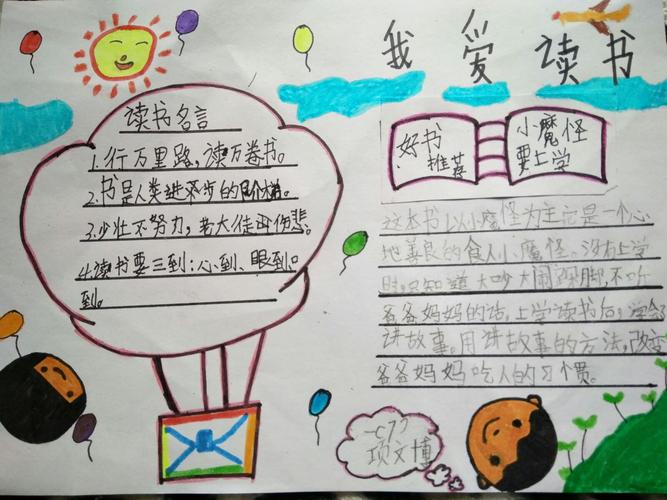 我爱读书
读书名言
1.行万里路,读万卷书。
2.书是人类进步的
3.少壮不努力,老大徒伤悲。
4.读书要三到:心到、眼到、口
到。
好书
推荐
小魔怪
要上学
这本书以小魔怪为主 是一个心
地善良的食人小魔怪、没有上学
时,只知道大吵大闹 脚,不听
爸爸妈妈的话,上学读书后,学会
讲故事。用讲故事的方法,改变
爸爸妈妈吃人的习惯。
项文博